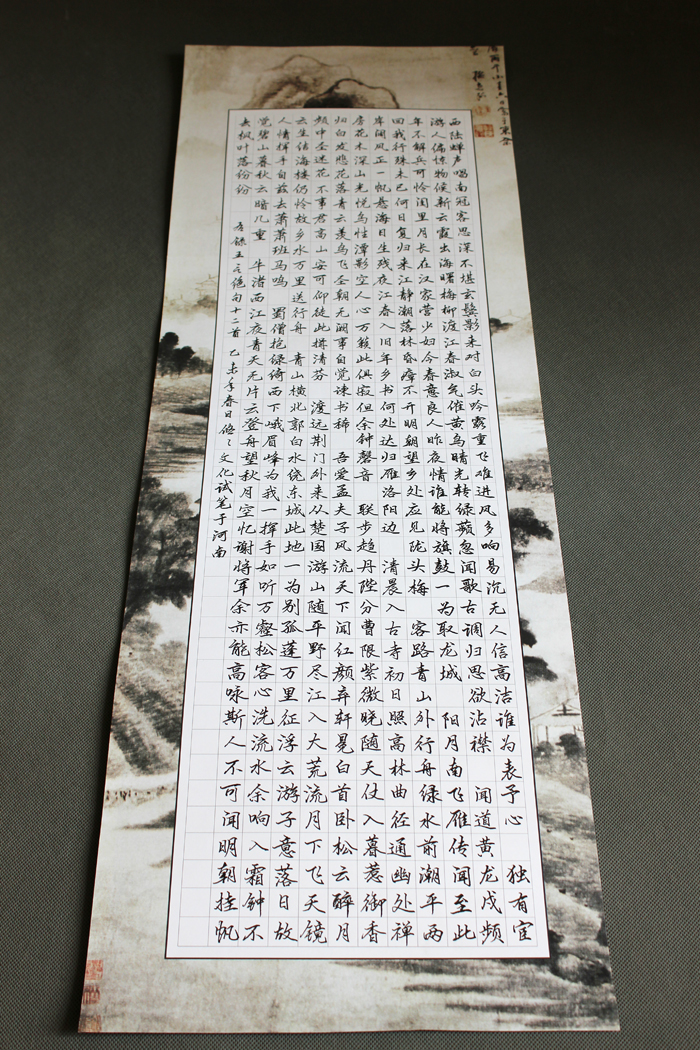 西陆蝉声唱南冠客思深不堪玄鬓影来对白头吟露重飞难进风多响易沉无人信高洁谁为表予心 独有宦
游人偏惊物候新云霞出海曙梅柳渡江春淑气催黄鸟晴光转绿蘋忽闻歌古调归思欲沾襟 闻道黄龙戍频
年不解兵可怜闺里月长在汉家营少妇今春意良人昨夜情谁能将旗鼓一为取龙城 阳月南飞雁传闻至此
回我行殊未已何日复归来江静潮落林昏瘴不开明朝望乡处应见陇头梅 客路青山外行舟绿水前潮平两
岸阔风正一帆悬海日生残夜江春入旧年乡书何处达归雁洛阳边 清晨入古寺初日照高林曲径通幽处禅
房花木深山光悦鸟性潭影空人心万籁此俱寂但余钟磬音 联步趋丹陛分曹限紫微晓随天仗入暮惹御香
归白发悲花落青云羡鸟飞圣朝无阙事自觉谏书稀 吾爱孟夫子风流天下闻红颜弃轩冕白首卧松云醉月
频中圣迷花不事君高山安可仰徒此揖清芬 渡远荆门外来从楚国游山随平野尽江入大荒流月下飞天镜
云生结海楼仍怜故乡水万里送行舟 青山横北郭白水绕东城此地一为别孤蓬万里征浮云游子意落日故
人情挥手自兹去萧萧班马鸣 蜀僧抱绿绮西下峨眉峰为我一挥手如听万壑松客心洗流水余响入霜钟不
觉碧山暮秋云暗几重 牛渚西江夜青天无片云登舟望秋月空忆谢将军余亦能高咏斯人不可闻明朝挂帆
去枫叶落纷纷
录五言绝句十二首 乙未年春日悠悠文化试笔于河南